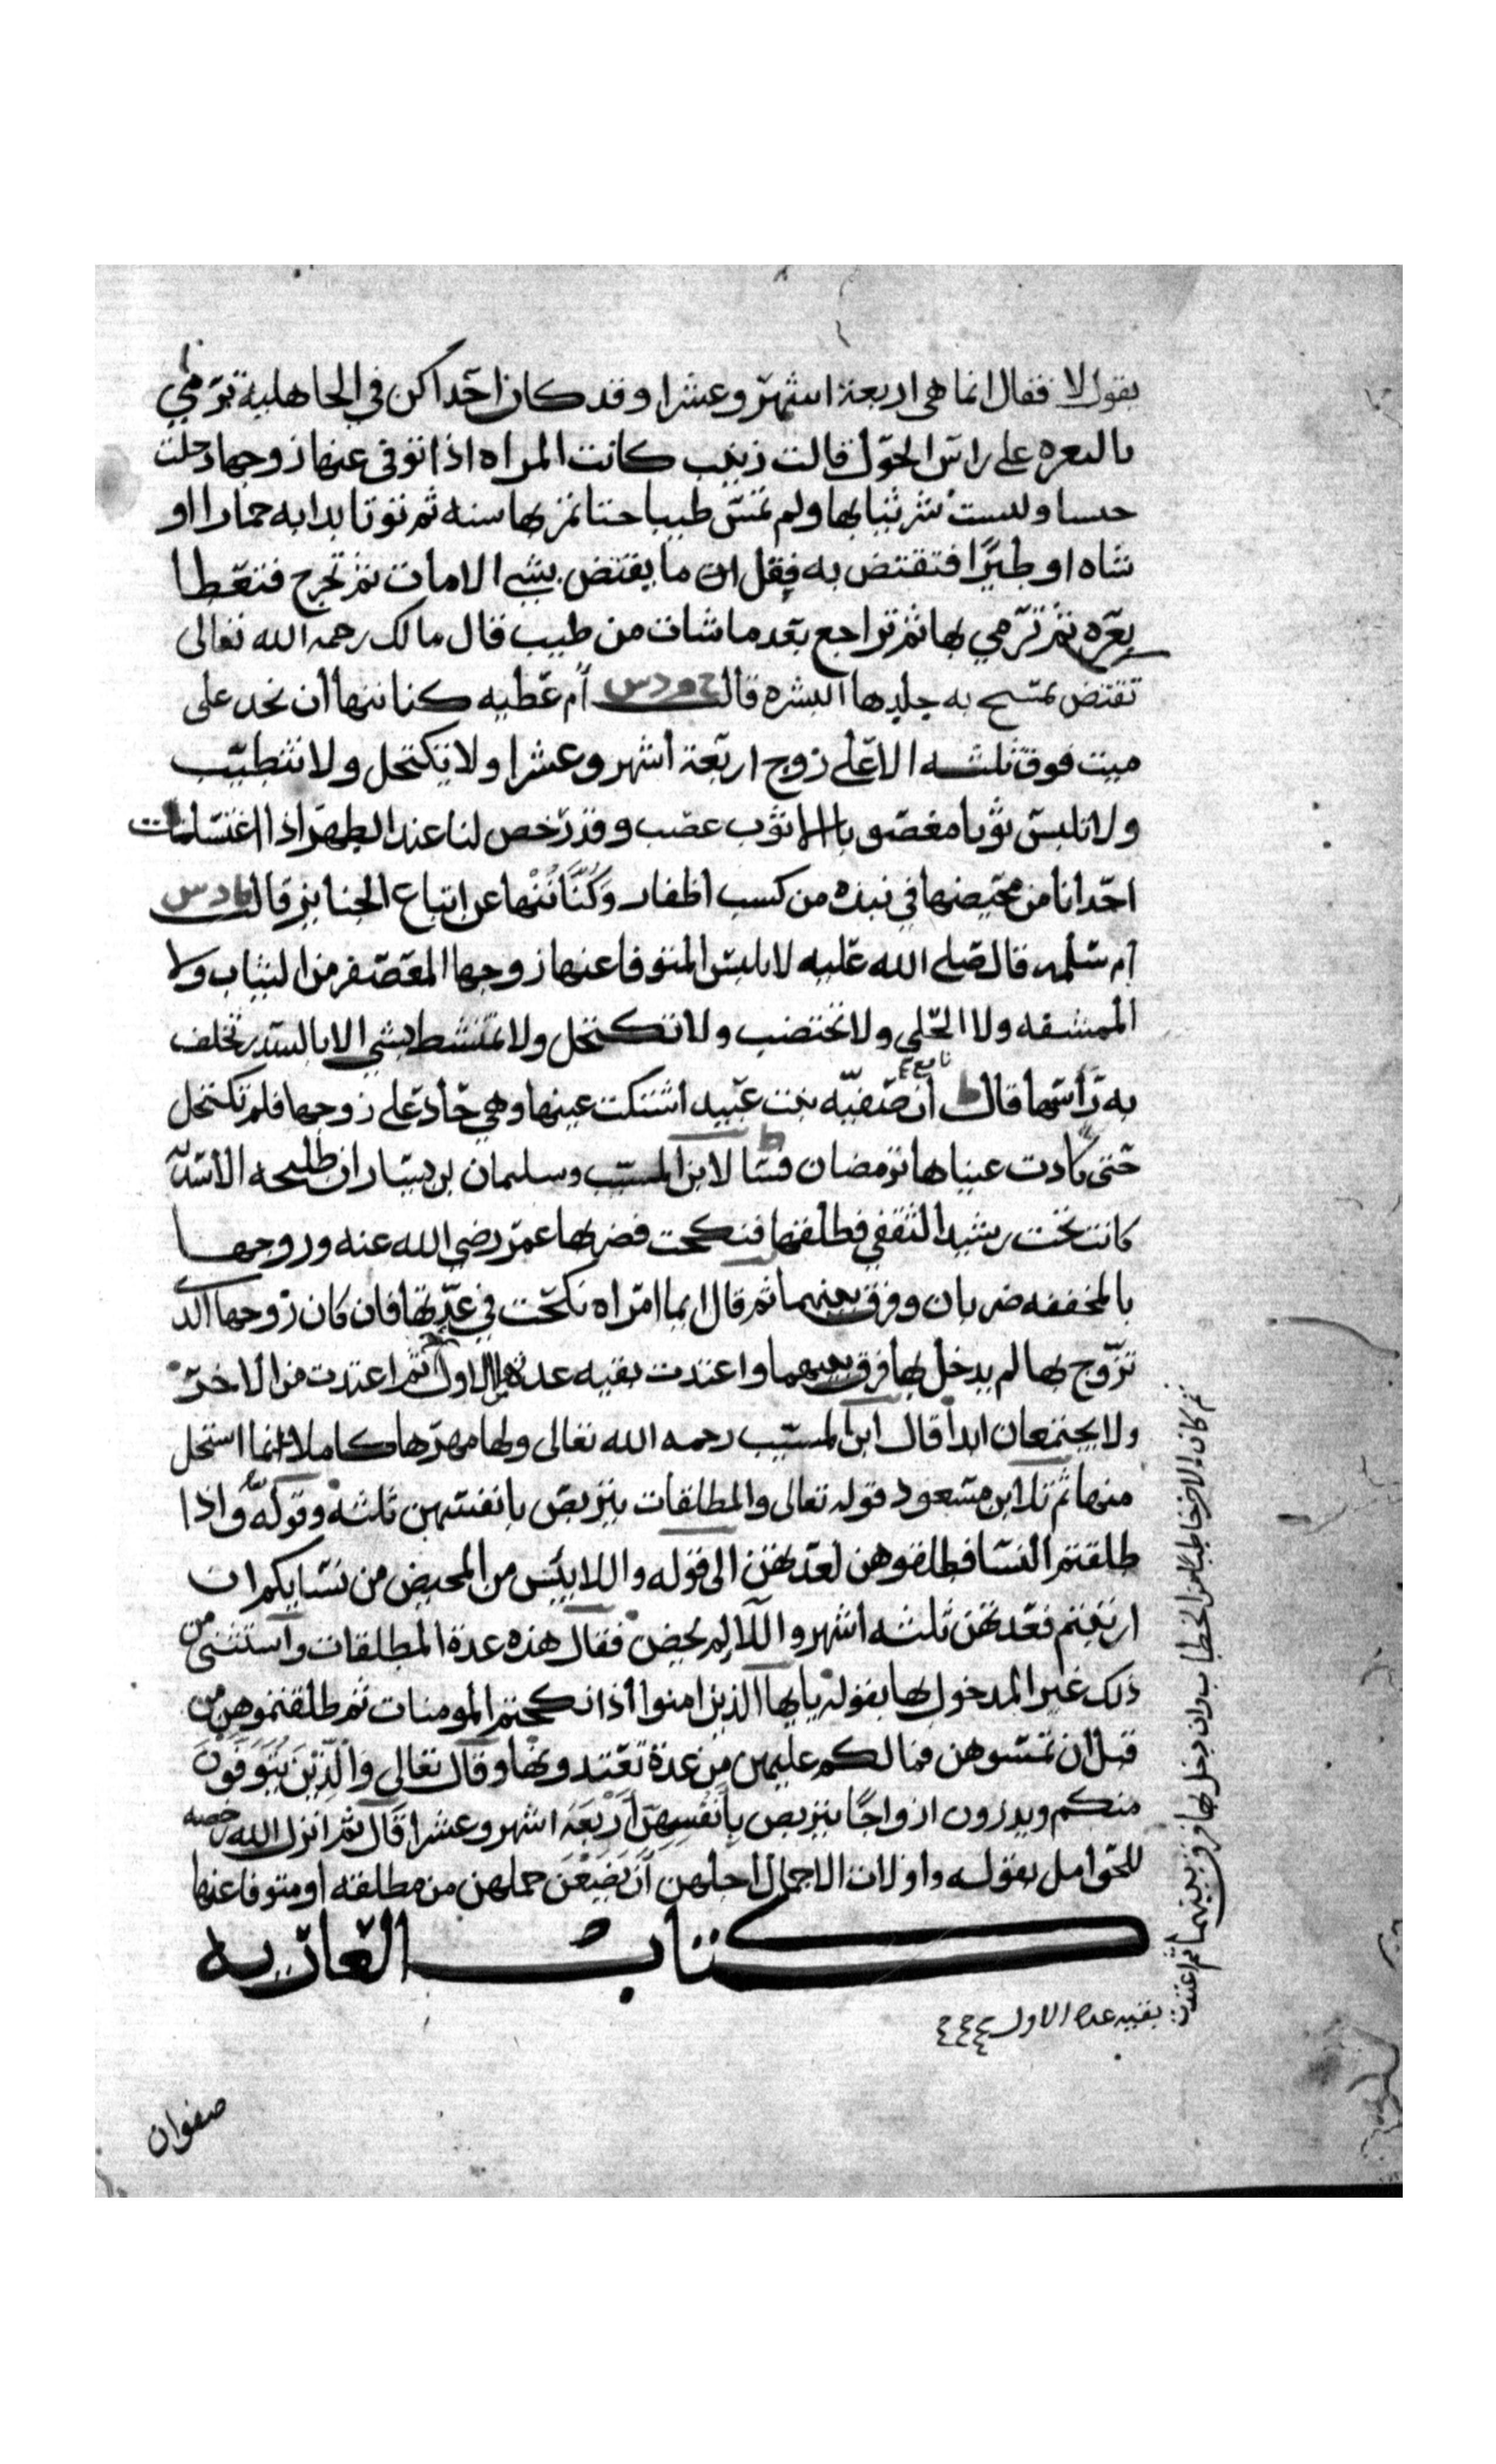 يقول لا فقال انما هى اربعة اشهر وعشرا وقد كان احداكن في الجاهلية ترمي
بالبعره على راس الحول قالت زينب كانت المراه اذا توفى عنها زوجها دخلت
حبسا ولبست شر ثيابها ولم تمس طيبا حتا تمز بها سنه ثم توتا بدابه حمارا او
شاه او طيرًا فتقتض به فقل ان ما يقتض بشي الا مات ثم تخرج فتعطا
بعره ثم ترمي بها ثم تراجع بعد ما شات من طيب قال مالك رحمه الله تعالى
تقتض تمسح به جلدها البشره قالت ح م د س أم عطيه كنا ننها أن نحد على
ميت فوق ثلثه الا على زوج اربعة أشهر وعشرا ولا نكتحل ولا نتطيب
ولا نلبس ثوبا مغصوبا الا ثوب عصب وقد رخص لنا عند الطهر اذا اغتسلت
احدانا من محيضها في نبذه من كسب اظفار وَكُنَّا نُنْها عن اتباع الجنايز قالت د س
ام سلمه قال صلى الله عليه لا تلبس المتوفا عنها زوجها المعصفر من الثياب ولا
الممشقه ولا الحلى ولا تختضب ولا تكتحل ولا تمتشط بشي الا بالسدر تغلف
به رأسها قال ط نافع أن صفيّه بنت عبيد اشتكت عينها وهي حاد على زوجها فلم تكتحل
حتى كادت عيناها ترمضان قسا لابن المسيب وسليمان بن يسار ان طليحه الأسديه
كانت تحت رشيد الثقفي فطلقها فنكحت فضربها عمر رضي الله عنه وزوجها
بالمخففه ضربان وفرق بينهما ثم قال ايما امراه نكحت في عدّتها فان كان زوجها الذ
تزوج بها لم يدخل بها فرق بينهما واعتدت بقيه عدة الاول ثم اعتدت من الاخر
ولا يجتمعان ابدا قال ابن المسيب رحمه الله تعالى ولها مهرها كاملا انما استحل
منها ثم تلا ابن مسعود قوله تعالى والمطلقات يتربصن بانفسهن ثلثه وقوله واذا
طلقتم النسا فطلقوهن لعدتهن الى قوله واللا ييئسن من المحيض من نسايكم ان
ارتبتم فعدتهن ثلثه اشهر واللا لم يحضن فقال هذه عدة المطلقات واستثنى من
ذلك غير المدخول بها بقوله يايها الذين امنوا اذا نكحتم المومنات ثم طلقتموهن من
قبل ان تمسوهن فما لكم عليهن من عدة تعتدونها وقال تعالى وَالَّذِيْنَ يُتَوَفَّوْنَ
منكم ويذرون ازواجًا يتربصن بِأَنْفُسِهِنَّ أَرْبَعَةَ اشهر وعشرا قال ثم انزل الله رخصه
للحوامل بقوله واولات الاحمال اجلهن أَنْ يَضَعْنَ حملهن من مطلقه او متوفا عنها
كتاب العاريه
ثم كان الاخر خاطبا من الخطاب وان دخل بها فرق بينهما ثم اعتدت
بقيه عده الاول
صفوان